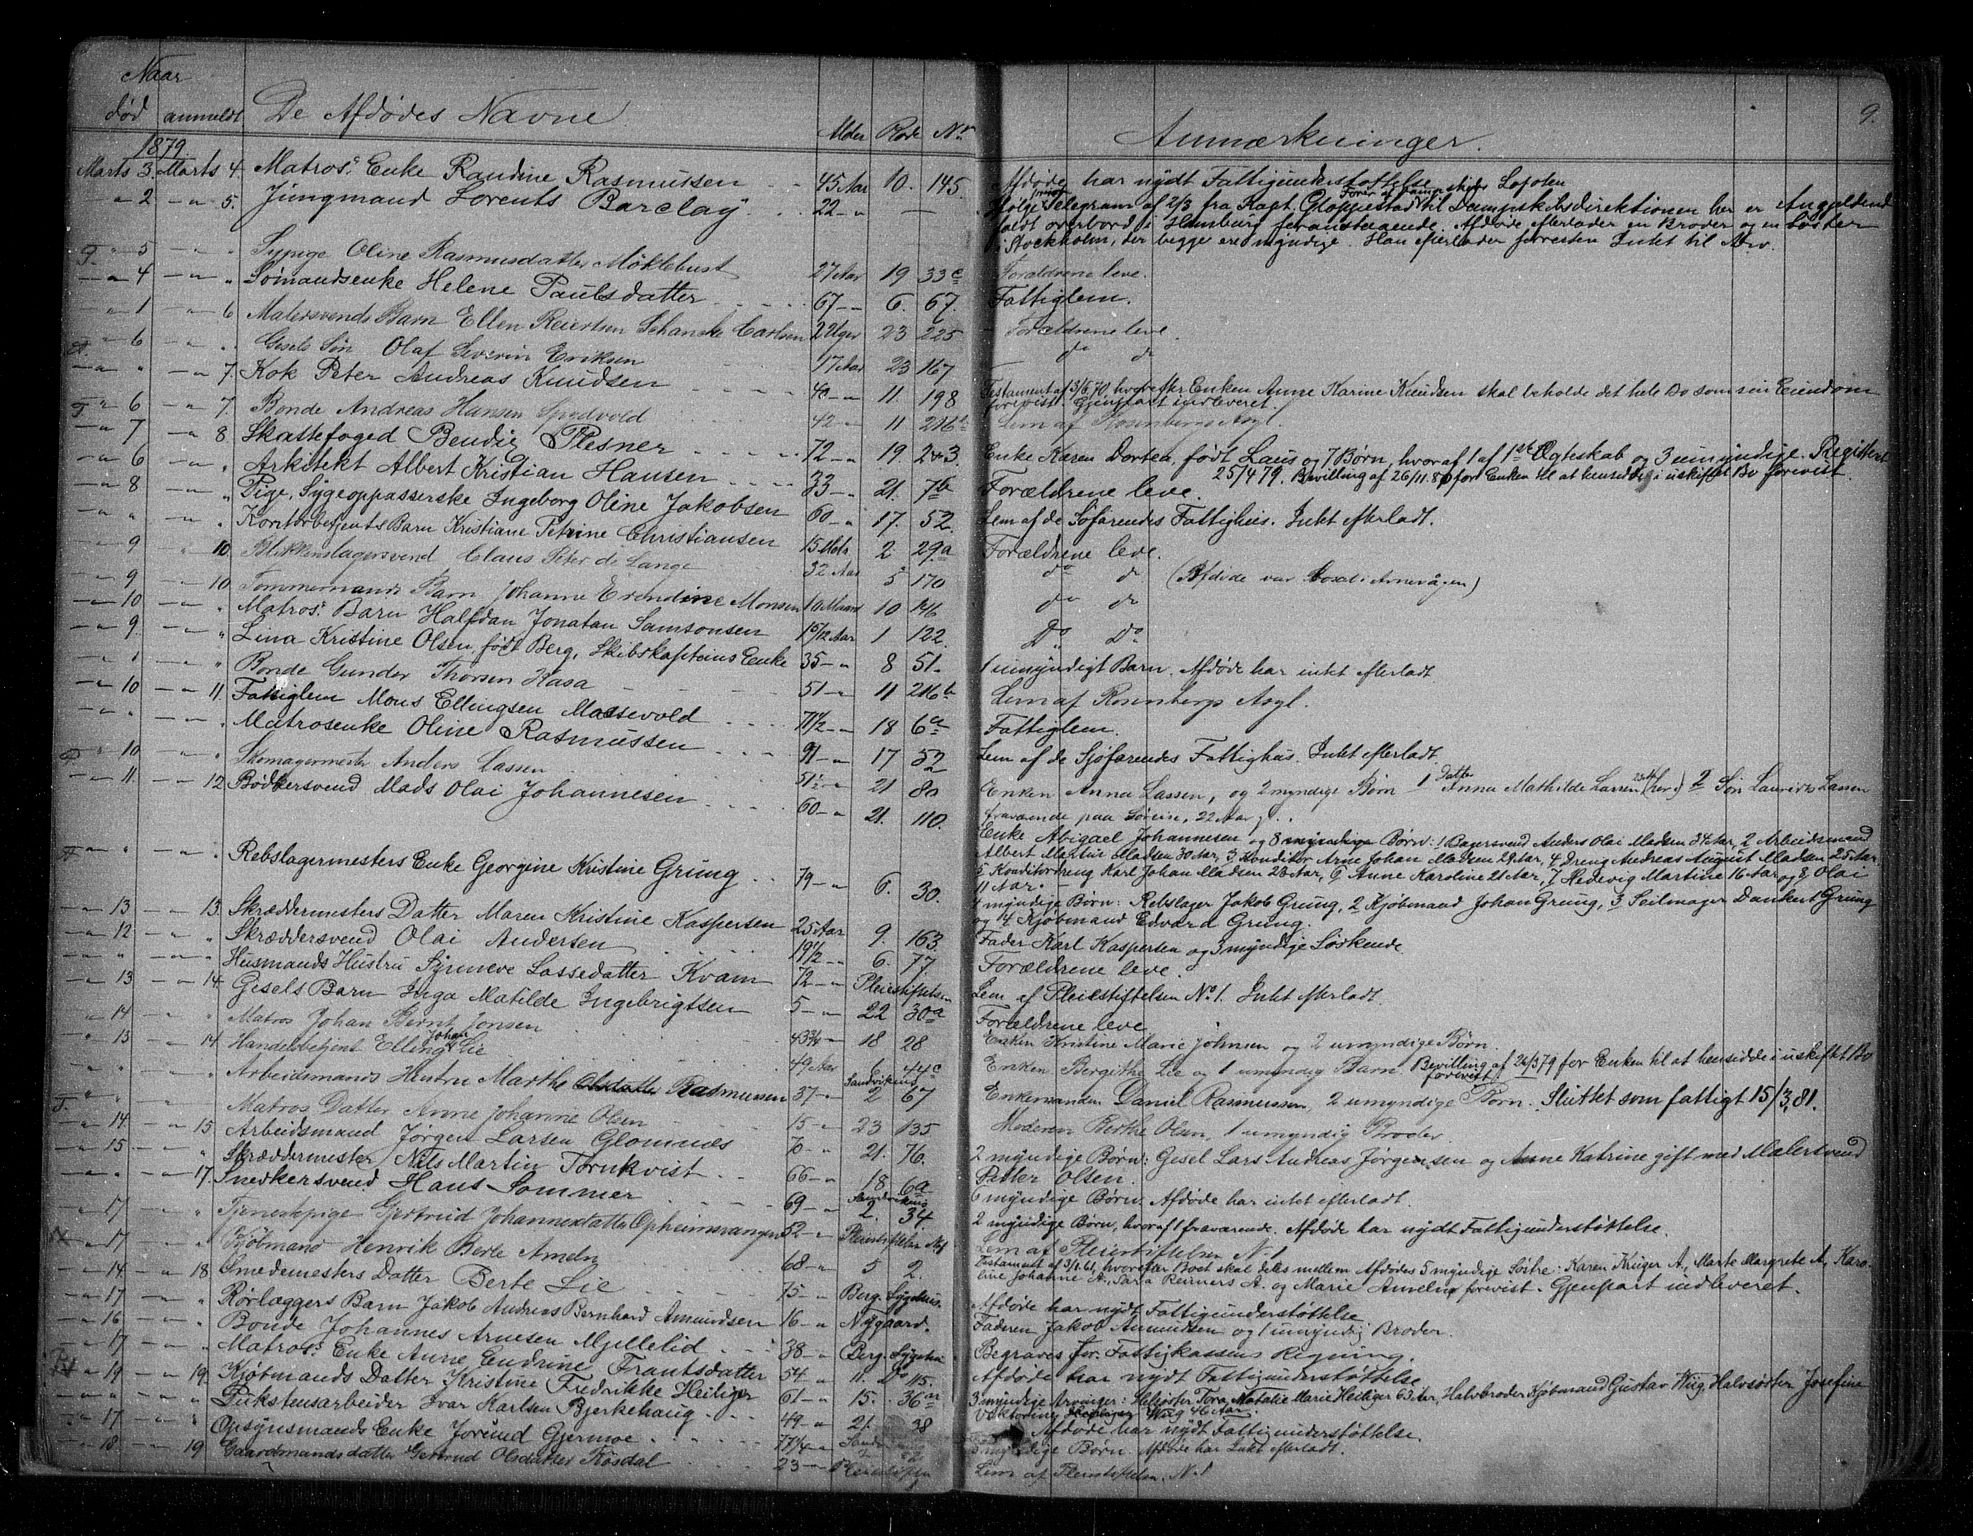 9.
Naar
død anmeldt De Afdødes Navne Alder Rode No. Anmærkninger.
1879
Marts 3. Marts 4. Matros: Enke Randine Rasmussen 45 Aar 10. 145. Afdøde har nydt Fattigunderstøttelse
" 2 " 5. Jüngmand Lorents Barclay 22 " — Ifølge Telegram af 2/3 fra Kapt. Gloppestad til Dampskibsdirektionen her er Angjeldende
faldt overbord i Hamburg. Afdøde efterlader en Broder og en Søster
i Stockholm, der begge ere myndige. Han efterlader forresten Intet til Arv.
T. " 5 " " Sypige Oline Rasmusdatter Möklebust 27 Aar 19 33c Forældrene leve.
" 4 " " Sømandsenke Helene Paulsdatter 67 " 6. 67. Fattiglem.
" 1 " 6 Malersvends Barn Ellen Reiertsen Schancke Carlsen 2 Uger 23 225 Forældrene leve
" 6 " " Gesels Søn Olaf Severin Eriksen 17 Aar 23 167 do do
" " " 7. Kok Peter Andreas Knudsen 40 " 11. 198 Testament af 3/6 70, hvorefter Enken Anne Karine Knudsen skal beholde det hele Bo som sin Eiendom
forevist. Gjenpart indleveret.
T. " 6 " 7. Bonde Andreas Hansen 42 " 11 216b Lem af Rosenbergs Asyl.
" 7 " 8 Skattefoged Bendix Plesner 72 " 19 2 3. Enke Karen Dorthea, født Laus og 7 Børn, hvoraf 1 af 1ste Ægteskab og 3 umyndige. Registrert
25/4 79. Bevilling af 26/11 80 for Enken til at hensidde i uskiftet Bo forevist.
" 6 " " Arkitekt Albert Kristian Hansen 33 " 21. 7b Forældrene leve.
" 8 " " Pige, Sygeopasserske Ingeborg Oline Jakobsen 60 " 17. 52. Lem af de Søfarendes Fattighus. Intet efterladt.
" " " " Kontorbetjents Barn Kristiane Petrine Christiansen 15 Mdr 2 29a Forældrene leve.
" 9 " 10. Blikkenslagersvend Claus Peter de Lange 32 Aar 5 170 do do (Afdøde var Bosat i Arnevågen)
" 9 " 10 Tømmermands Barn Johanne Erendine Monsen 10 Maaned 10 146 do do
" 10 " " Matros: Barn Halfdan Jonatan Samsonsen 15/12 Aar 1 122 Do Do
" 9. " " Lina Kristine Olsen, født Berg, Skibskapteins Enke 35 " 8 51. 1 umyndigt Barn. Afdøde har intet efterladt
" " " " Bonde Gunder Thorsen Kasa 51 " 11 216b Lem af Rosenbergs Asyl.
" 10 " 11. Fattiglem Mons Ellingsen Massevold 71½ " 18 6a Fattiglem.
" " " " Matrosenke Oline Rasmussen 91 " 17 52 Lem af de Sjøfarendes Fattighus. Intet efterladt
" 10 " " Skomagermester Anders Lassen 51½ " 21 80 Enken Anna Lassen, og 2 myndige Børn 1 Datter Anna Mathilde Lassen (her) 2 Søn Laurits Lassen
fraværende paa Søreise, 22 Aar g.
" 11. " 12 Bødkersvend Mads Olai Johannesen 60 " 21. 110. Enke Abigael Johannesen og 8 myndige Børn: 1 Bagersvend Anders Olai Madsen 34 Aar, 2 Arbeidsmand
Albert Martin Madsen 30 Aar, 3 Konditor Arne Johan Madsen 28 Aar, 4 Dreng Andreas August Madsen 25 Aar,
5 Konditordreng Karl Johan Madsen 23 Aar, 6 Anne Karoline 21 Aar, 7 Hedevig Martine 16 Aar og 8 Olai
11 Aar.
" " " " Rebslagermesters Enke Georgine Kristine Grung 79 " 6. 30. 4 myndige Børn: Rebslager Jakob Grung, 2 Kjøbmand Johan Grung, 3 Seilmager Dankert Grung
og 4 Kjøbmand Edvard Grung.
" 13 " 13. Skræddermesters Datter Maren Kristine Kaspersen 25 Aar 9. 163. Fader Karl Kaspersen og 3 myndige Sødskende
" 12 " " Skræddersvend Olai Andersen 19½ " 6. 77. Forældrene leve.
" " " " Husmands Hustru Synneve Lassedatter Kvam 72 " Pleiestiftelsen Lem af Pleiestiftelsen No 1. Intet efterladt.
" 13 " 14. Gesels Barn Inga Matilde Ingebrigtsen 5 " 22 30a Forældrene leve
" 14 " " Matros Johan Bernt Jonsen 43¾ " 18 28 Enken Kristine Marie Johnsen og 2 umyndige Børn.
" 13 " 14. Handelsbetjent Elling Johan Lie 49 Aar 6 44c Enken Bergithe Lie og 1 umyndig Barn. Bevilling af 26/3 79 for Enken til at hensidde i uskiftet Bo
forevist
" " " " Arbeidsmands Hustru Marthe Olsdatter Rasmussen 37 " Sandvikens 2 67 Enkemanden Daniel Rasmussen, 2 umyndige Børn. Sluttet som fattigt 15/3 81.
T. " " " " Matros Datter Anne Johanne Olsen 15 " 23 135 Moderen Berthe Olsen, 1 umyndig Broder.
" 14 " 15. Arbeidsmand Jørgen Larsen Glomnes 70 " 21. 76. 2 myndige Børn: Gesel Lars Andreas Jørgensen og Anne Katrine gift med Malersvend
Petter Olsen.
" 15 " " Skræddermester Nils Martin Tornkvist 66 " 18 6a 6 myndige Børn. Afdøde har intet efterladt.
" " " 17. Snedkersvend Hans Sommer 69 " Sandvikens 2. 34. 2 myndige Børn, hvoraf 1 fraværende. Afdøde har nydt Fattigunderstøttelse.
" 17 " " Tjenestepige Gjertrud Johannesdatter Opheimsvangen 52 " Pleiestiftelsen No 1 Lem af Pleiestiftelsen No 1
" 17 " " Kjøbmand Henrik Berle Ameln 68 " 5 2. Testament af 3/1 61, hvorefter Boet skal deles mellem Afdødes 5 myndige Søstre: Karen Krüger A., Marte Margrete A., Karo-
line Johanne A., Sara Reimers A. og Marie Ameln, forevist. Gjenpart indleveret.
" 14 " 18. Smedemesters Datter Berte Lie 75 " Berg. Sygehus. Afdøde har nydt Fattigunderstøttelse
" 17 " " Rørlæggers Barn Jakob Andreas Bernhard Amundsen 16 " Nygaard. Faderen Jakob Amundsen og 1 umyndig Broder.
" 16 " " Bonde Johannes Arnesen Mjellelid 38 " Berg. Sygehus Begraves for Fattigkassens Regning.
" 17 " " Matros: Enke Anne Endrine Frantsdatter 54 " 11. Do 115. Afdøde har nydt Fattigunderstøttelse
" 19 " 19. Kjøbmands Datter Kristine Fredrikke Heiliger 61 " 15. 36 3 myndige Arvinger: Helsøster Tora Natalie Marie Heiliger 63 Aar, Halvbroder Kjøbmand Gustav Wiig, Halvsøster Josefine
Viktorine Wiig 46 Aar.
" " " " Pukstensarbeider Ivar Karlsen Bjerkehaug 49 " 21. 38 Afdøde har nydt Fattigunderstøttelse.
" 17 " " Opsynsmands Enke Jorund Gjermoe 77¼ " Sandv. 2 myndige Børn. Afdøde har Intet efterladt.
" 18 " 19 Gaardmandsdatter Gertrud Olsdatter Røsdal 23 " Pleiestiftelsen Lem af Pleiestiftelsen No 1